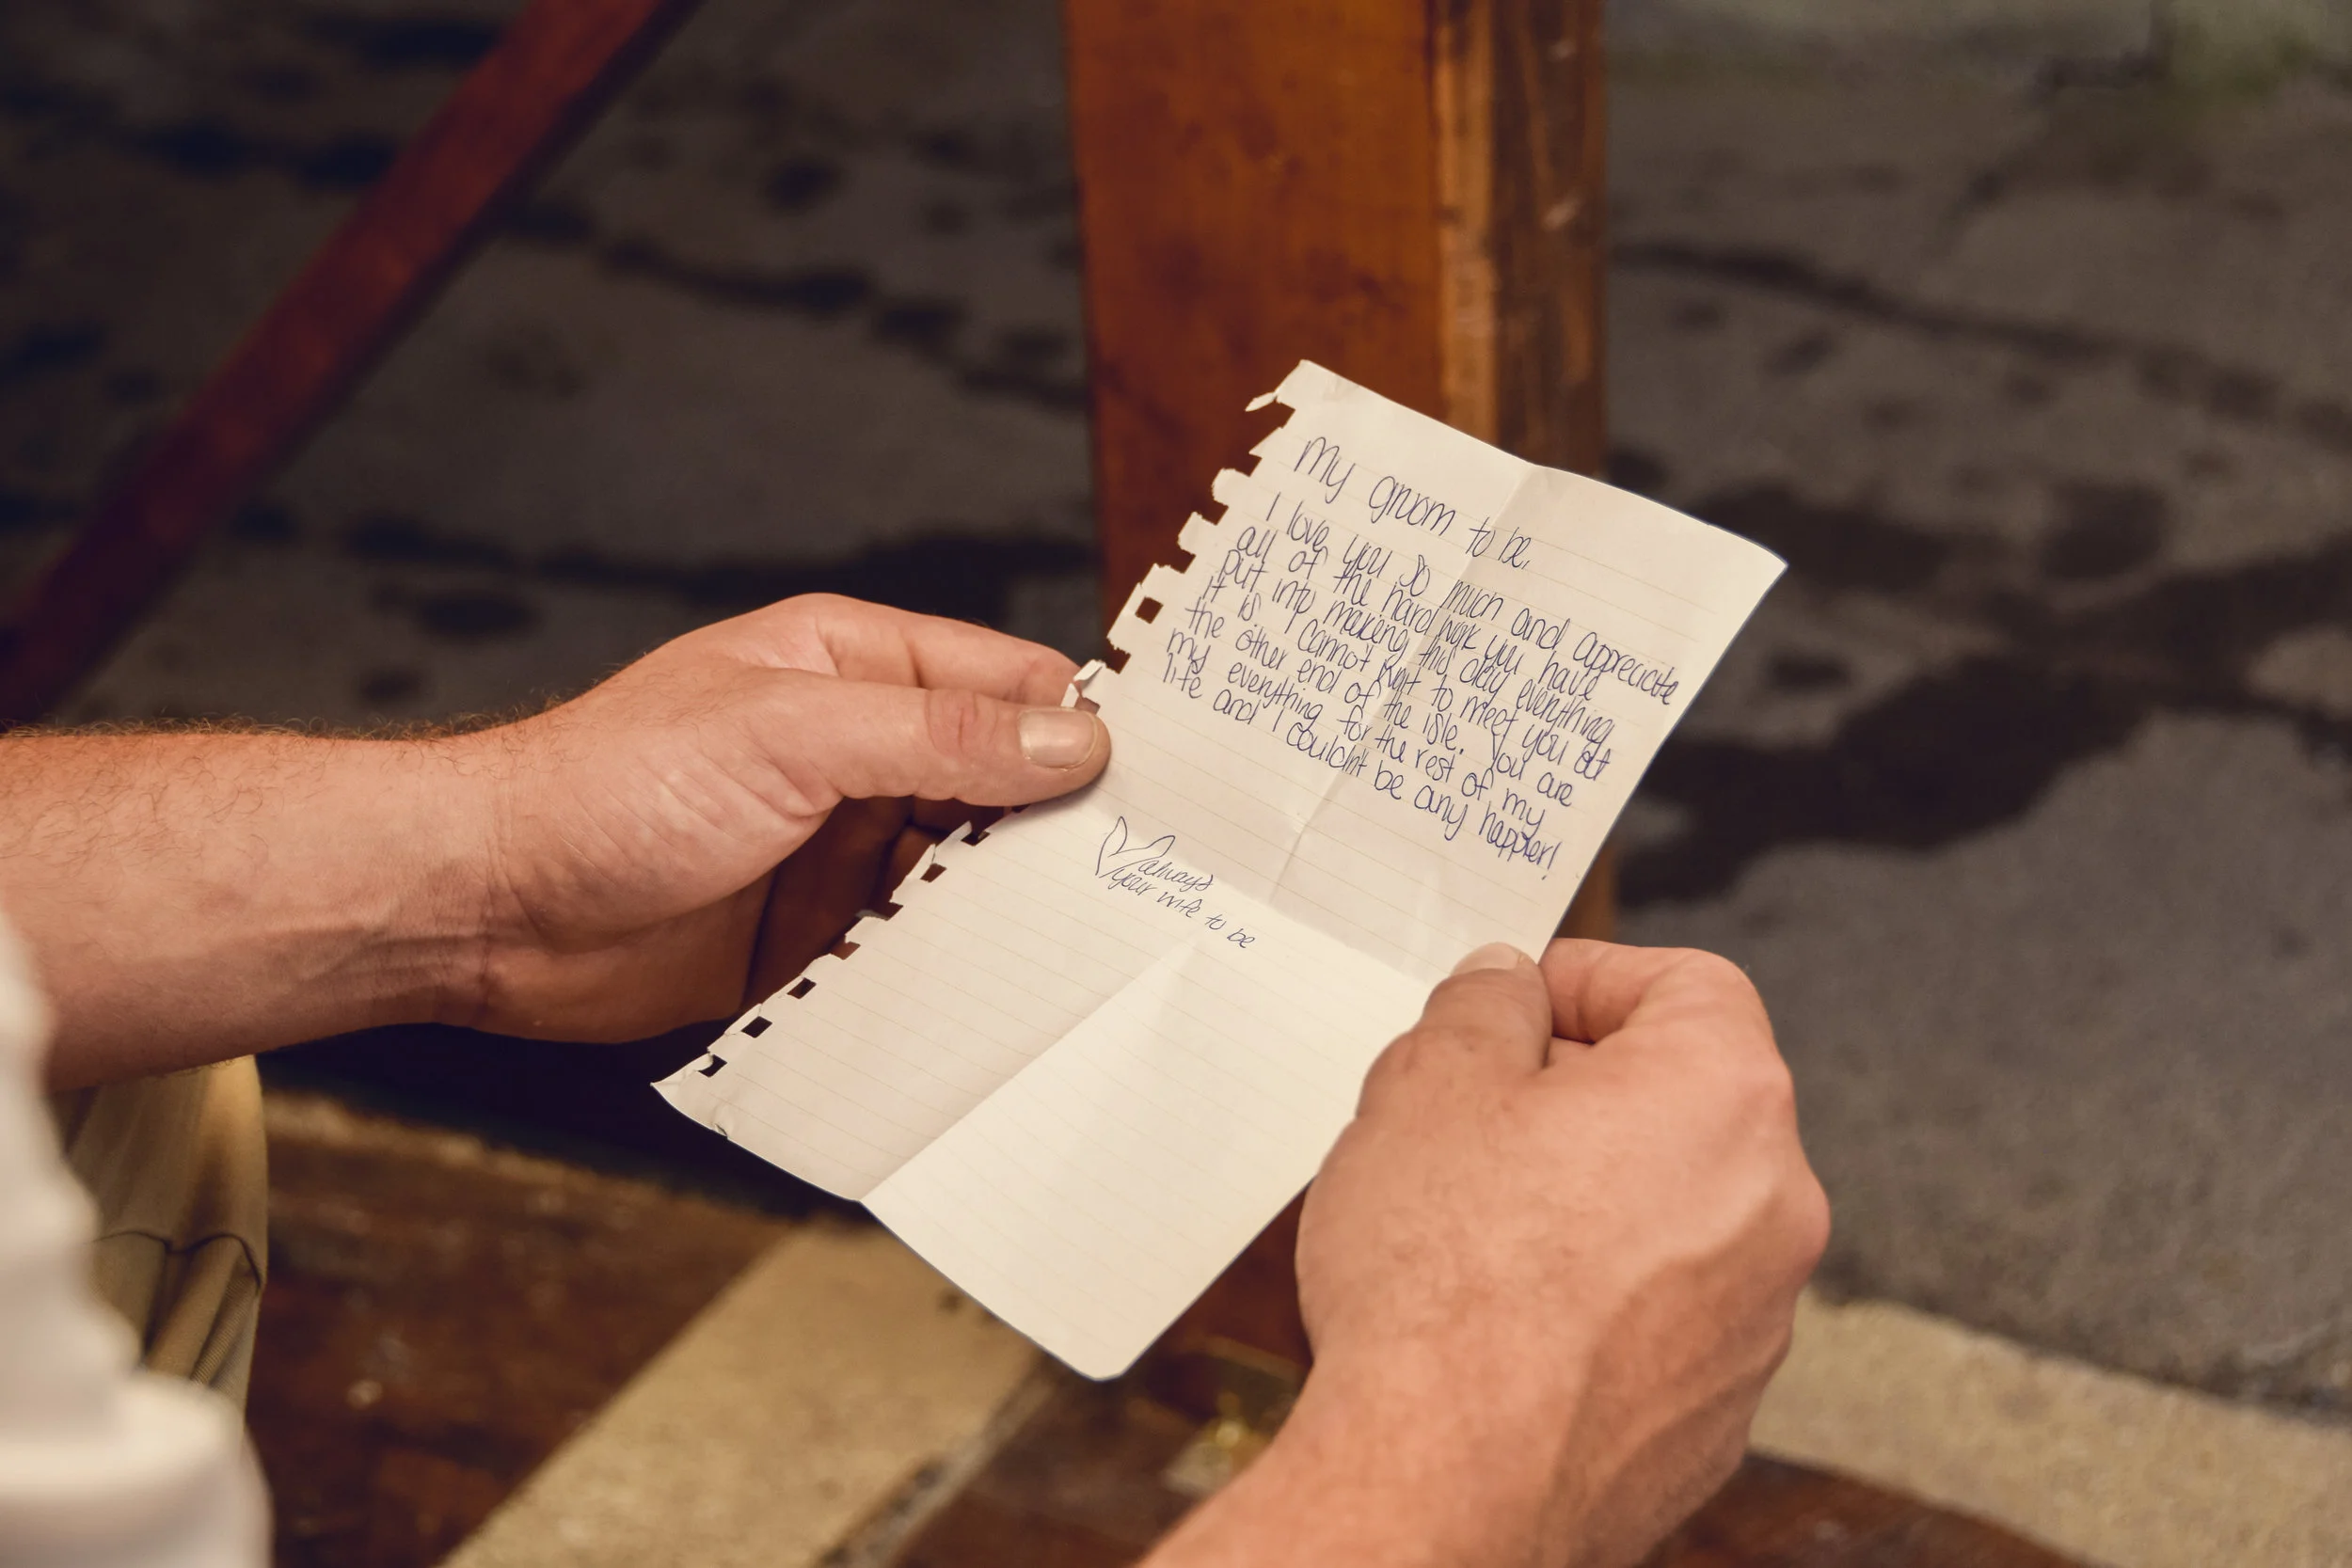 My groom to be,
I love you so much and appreciate
all of the hard work you have
put into making this day everything
it is. I cannot wait to meet you at
the other end of the isle. You are
my everything for the rest of my
life and I couldn't be any happier!
always
your wife to be